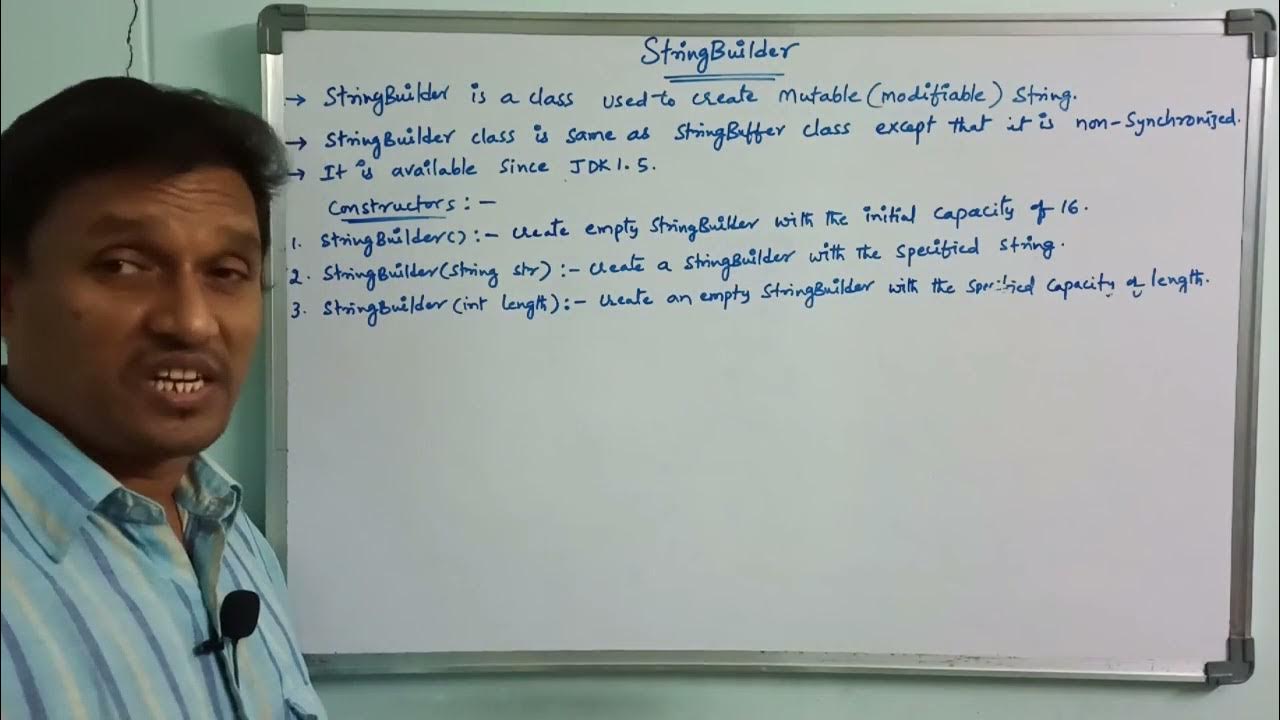 StringBuilder
→ StringBuilder is a class used to create Mutable (modifiable) String.
→ StringBuilder class is same as StringBuffer class except that it is non-Synchronized.
→ It is available since JDK1.5.
Constructors :-
1. StringBuilder() :- create empty StringBuilder with the initial capacity of 16.
2. StringBuilder(String str) :- create a StringBuilder with the specified string.
3. StringBuilder (int length) :- create an empty StringBuilder with the specified capacity of length.